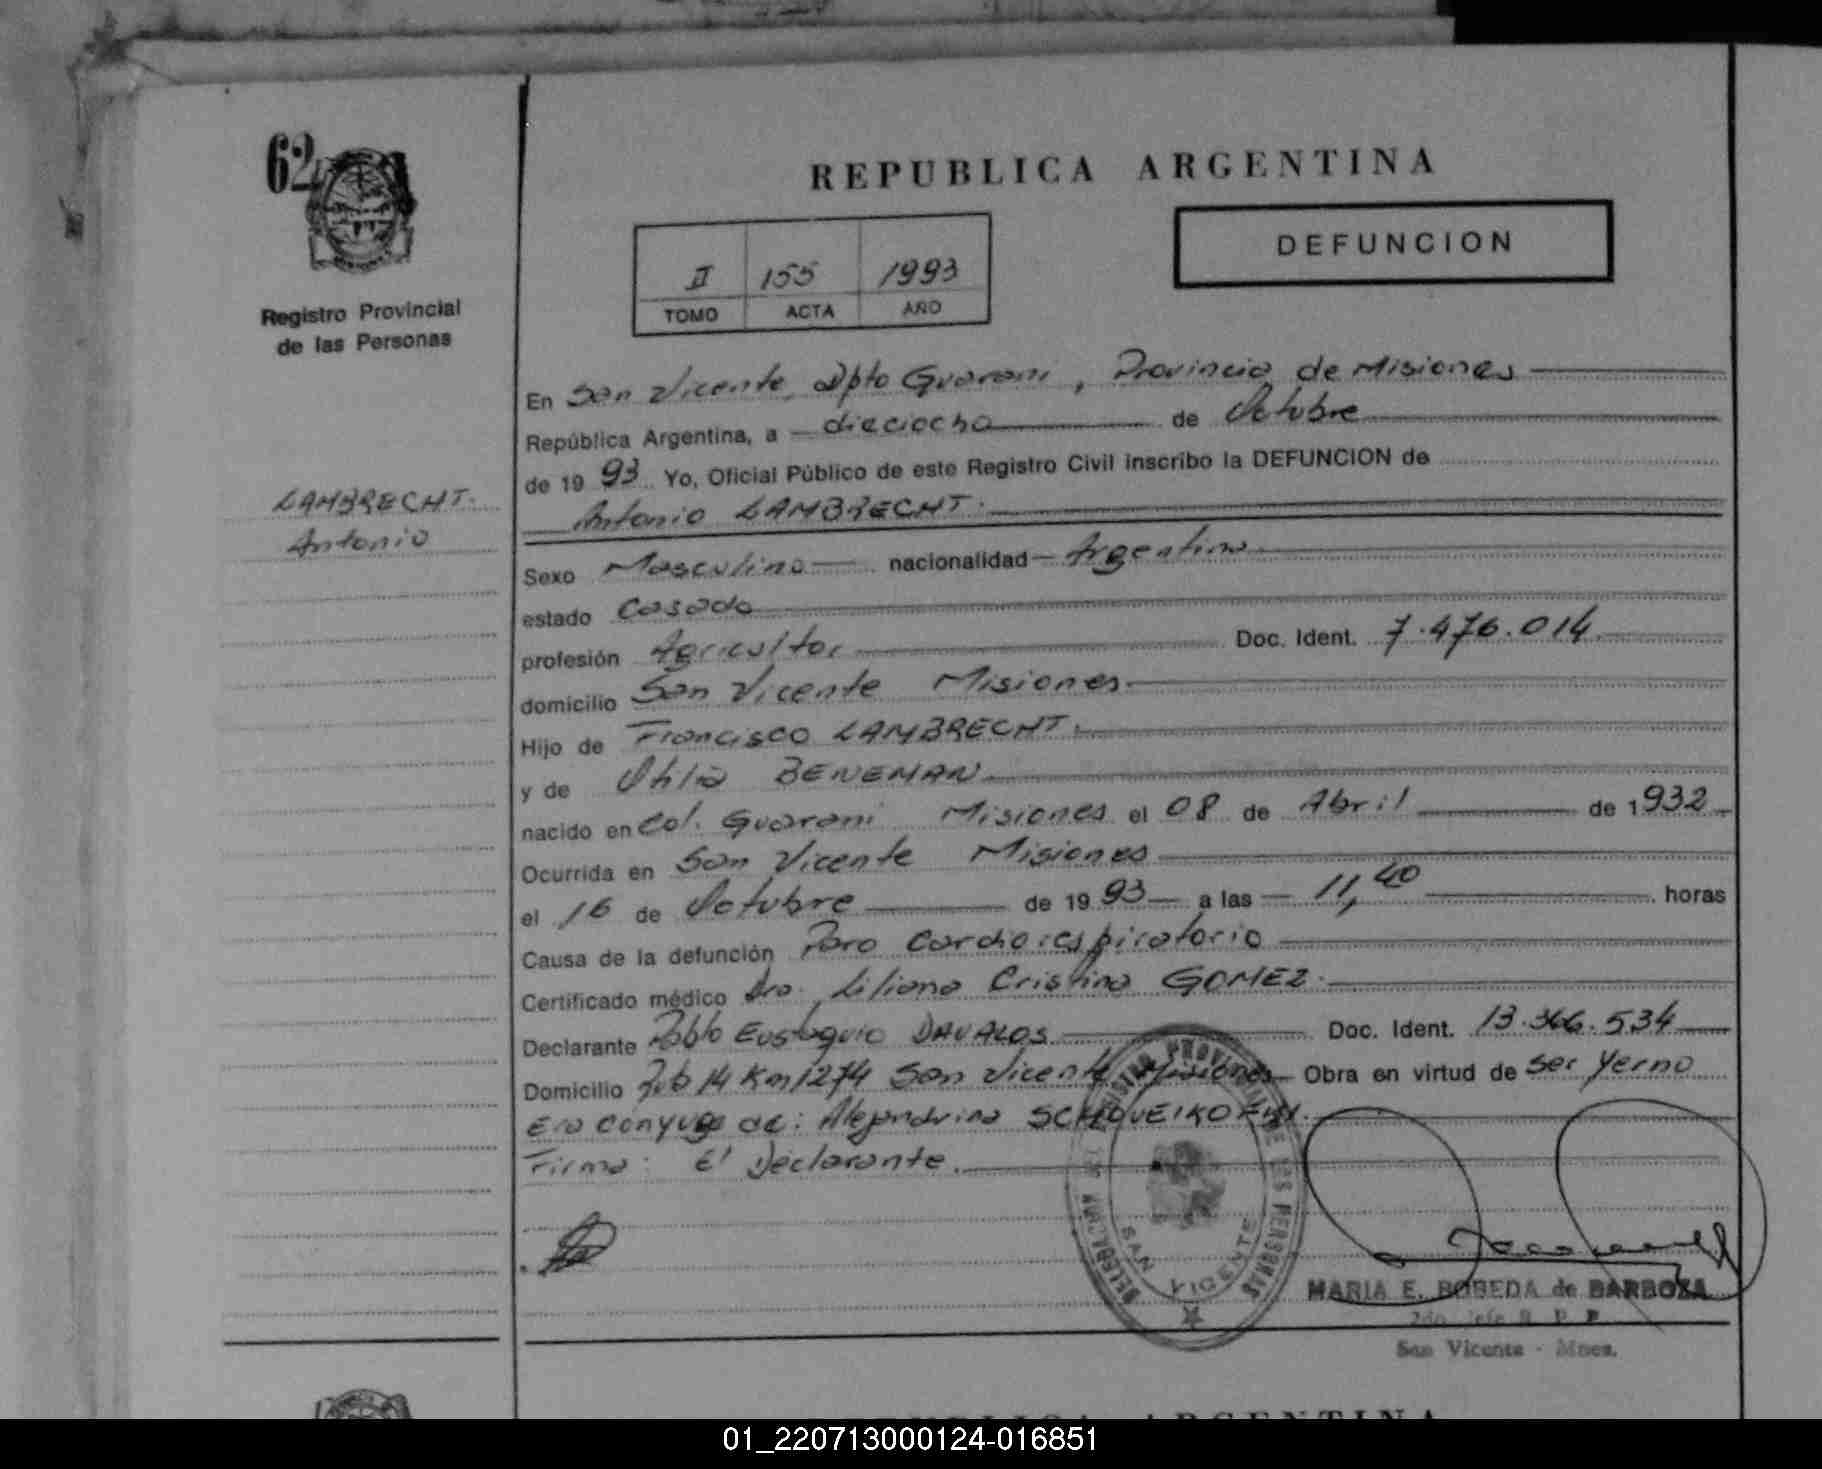 62
REPUBLICA ARGENTINA
DEFUNCION
II 155 1993
TOMO ACTA AÑO
Registro Provincial
de las Personas
LAMBRECHT.
Antonio
En San Vicente, Dpto Guarani, Provincia de Misiones
República Argentina, a dieciocho de Octubre
de 1993 Yo, Oficial Público de este Registro Civil inscribo la DEFUNCION de
Antonio LAMBRECHT.
Sexo Masculino nacionalidad Argentina
estado Casado
profesión Agricultor Doc. Ident. 7.476.014
domicilio San Vicente Misiones
Hijo de Francisco LAMBRECHT.
y de Otilia BENEMAN
nacido en Col. Guarani Misiones el 08 de Abril de 1932
Ocurrida en San Vicente Misiones
el 16 de Octubre de 1993 a las 11,40 horas
Causa de la defunción Paro Cardiorespiratorio
Certificado médico Dra. Liliana Cristina GOMEZ.
Declarante Pablo Eustaquio DAVALOS Doc. Ident. 13.366.534
Domicilio Km 1274 San Vicente Misiones Obra en virtud de ser Yerno
Era conyuge de: Alejandrina
Firma: El Declarante.
REGISTRO PROVINCIAL DE LAS PERSONAS
SAN VICENTE
MARIA E. BOBEDA de BARBOZA
2do Jefe R. P. P.
San Vicente - Mnes.
REPUBLICA ARGENTINA
01_220713000124-016851